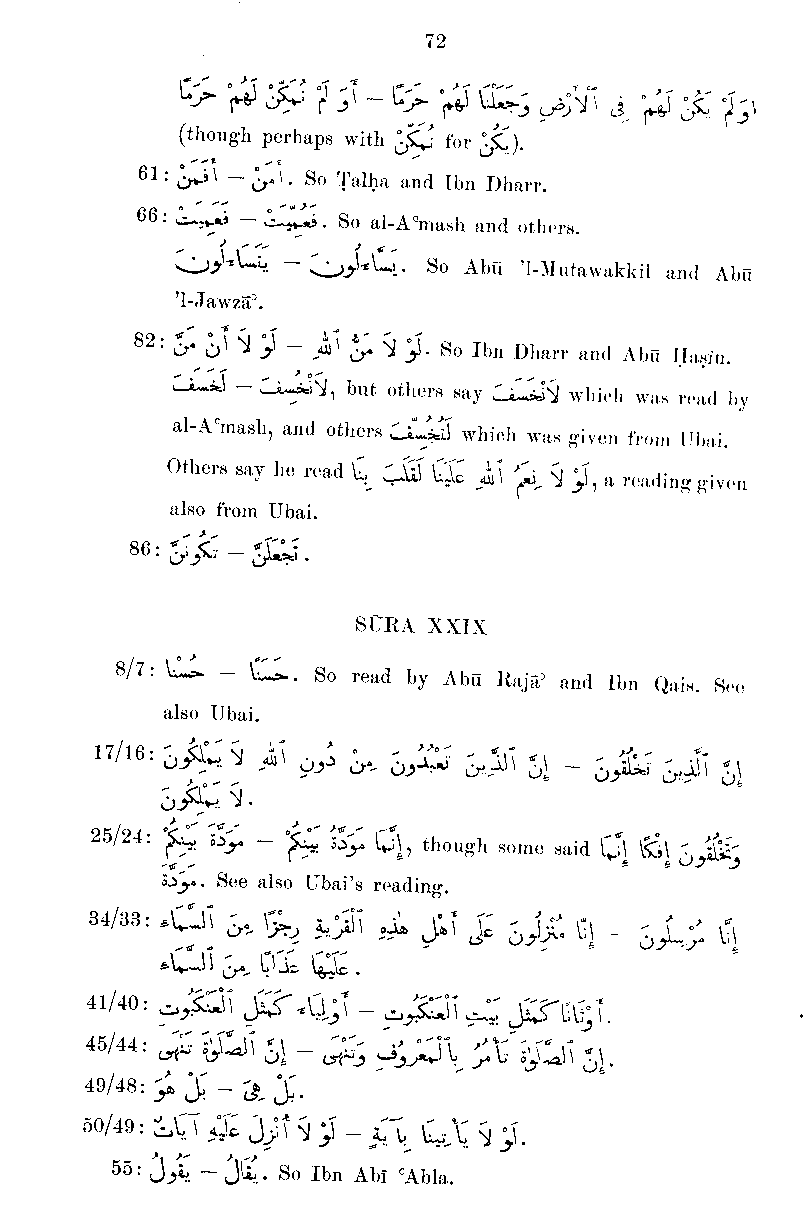 72
أَوَ لَمْ نُمَكِّنْ لَهُمْ حَرَمًا – اوَلَمْ يَكُنْ لَهُمْ فِى ٱلْأَرْضِ وَجَعَلْنَا لَهُمْ حَرَمًا
(though perhaps with نُمَكِّنْ for يَكُنْ).
61: أَفَمَنْ – أَمَنْ. So Ṭalḥa and Ibn Dharr.
66: فَعَمِيَتْ – فَعُمِّيَتْ. So al-Aʿmash and others.
يَتَسَاءَلُونَ – يَسَّاءَلُونَ. So Abū ʾl-Mutawakkil and Abū
ʾl-Jawzāʾ.
82: لَوْ لَا أَنْ مَنَّ – لَوْ لَا مَنُّ ٱللهِ. So Ibn Dharr and Abū Ḥaṣīn.
لَخَسَفَ – لَانْخُسِفَ, but others say لَانْخَسَفَ which was read by
al-Aʿmash, and others لَتُخُسِّفَ which was given from Ubai.
Others say he read لَوْ لَا نِعَمُ ٱللهِ عَلَيْنَا لَقَلَبَ بِنَا, a reading given
also from Ubai.
86: تَكُونَنَّ – تَجْعَلَنَّ.
SŪRA XXIX
8/7: حُسْنًا – حَسَنًا. So read by Abū Rajāʾ and Ibn Qais. See
also Ubai.
17/16: إِنَّ ٱلَّذِينَ تَعْبُدُونَ مِنْ دُونِ ٱللهِ لَا يَمْلِكُونَ – إِنَّ ٱلَّذِينَ تَخْلُقُونَ
لَا يَمْلِكُونَ.
25/24: مَوَدَّةَ بَيْنِكُمْ – إِنَّمَا مَوَدَّةُ بَيْنِكُمْ, though some said وَتَخْلُقُونَ إِفْكًا إِنَّمَا
مَوَدَّةَ. See also Ubai's reading.
34/33: إِنَّا مُنْزِلُونَ عَلَى أَهْلِ هٰذِهِ ٱلْقَرْيَةِ رِجْزًا مِنَ ٱلسَّمَاءِ – إِنَّا مُرْسِلُونَ
عَلَيْهَا عَذَابًا مِنَ ٱلسَّمَاءِ.
41/40: أَوْلِيَاءَ كَمَثَلِ ٱلْعَنْكَبُوتِ – أَوْثَانًا كَمَثَلِ بَيْتِ ٱلْعَنْكَبُوتِ.
45/44: إِنَّ ٱلصَّلَوٰةَ تَنْهَى – إِنَّ ٱلصَّلَوٰةَ تَأْمُرُ بِٱلْمَعْرُوفِ وَتَنْهَى.
49/48: بَلْ هُوَ – بَلْ هِىَ.
50/49: لَوْ لَا أُنْزِلَ عَلَيْهِ آيَاتٌ – لَوْ لَا يَأْتِينَا بِآيَةٍ.
55: يَقُولُ – يُقَالُ. So Ibn Abī ʿAbla.